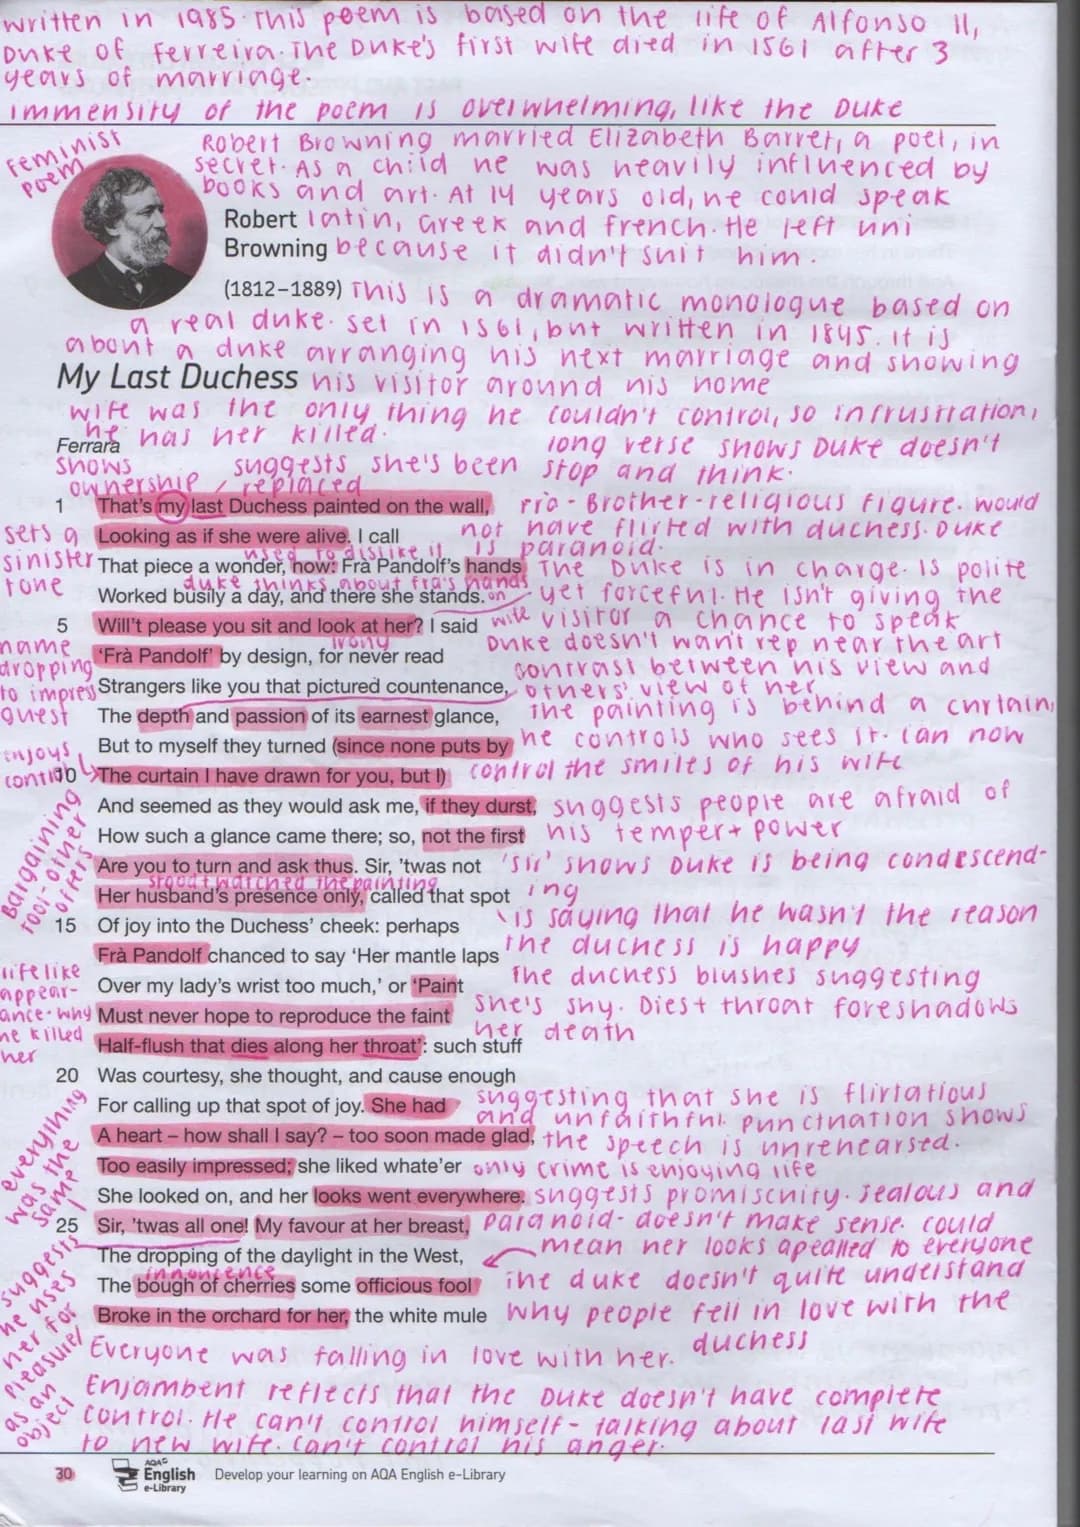 written in 1985. This poem is based on the life of Alfonso II,
Duke of Ferreira. The Duke's first wife died in 1561 after 3
years of marriage.
immensity of the poem is overwhelming, like the Duke
Feminist
poem
Robert Browning married Elizabeth Barret, a poet, in
secret. As a child he was heavily influenced by
books and art. At 14 years old, he could speak
Robert latin, Greek and french. He left uni
Browning because it didn't suit him.
(1812–1889) This is a dramatic monologue based on
a real duke. set in 1561, but written in 1845. it is
about a duke arranging his next marriage and showing
My Last Duchess his visitor around his home
wife was the only thing he couldn't control, so in frustration,
he has her killed.
Ferrara
long verse shows Duke doesn't
stop and think.
shows
ownership
suggests she's been
replaced
1 That's my last Duchess painted on the wall,
fra - Brother - religious figure. would
sets a
sinister
tone
Looking as if she were alive. I call
not have flirted with duchess. Duke
is paranoid.
used to dislike it
That piece a wonder, now: Frà Pandolf's hands
The Duke is in charge. Is polite
duke thinks about fra's hands
on
wife
Worked busily a day, and there she stands.
yet forceful. He isn't giving the
5 Will't please you sit and look at her? I said
visitor a chance to speak
name
dropping
to impress
guest
irony
'Frà Pandolf' by design, for never read
Duke doesn't want rep near the art
Strangers like you that pictured countenance,
contrast between his view and
others' view of her
The depth and passion of its earnest glance,
The painting is behind a curtain,
But to myself they turned (since none puts by
he controls who sees it. Can now
enjoys
control
10 The curtain I have drawn for you, but I)
control the smiles of his wife
And seemed as they would ask me, if they durst,
suggests people are afraid of
How such a glance came there; so, not the first
his temper + power
Bargaining
tool - other
offers
Are you to turn and ask thus. Sir, 'twas not
'Sir' shows Duke is being condescend-
ing
stood + watched the painting
Her husband's presence only, called that spot
15 Of joy into the Duchess' cheek: perhaps
is saying that he wasn't the reason
the duchess is happy
Frà Pandolf chanced to say 'Her mantle laps
lifelike
appear-
ance. why
he killed
her
Over my lady's wrist too much,' or 'Paint
The duchess blushes suggesting
Must never hope to reproduce the faint
she's shy. Dies + throat foreshadows
her death
Half-flush that dies along her throat': such stuff
20 Was courtesy, she thought, and cause enough
For calling up that spot of joy. She had
suggesting that she is flirtatious
and unfaithful. punctuation shows
A heart – how shall I say? – too soon made glad,
the speech is unrehearsed.
everything
was the
same
Too easily impressed; she liked whate'er
only crime is enjoying life
She looked on, and her looks went everywhere.
suggests promiscuity. Jealous and
25 Sir, 'twas all one! My favour at her breast,
paranoid - doesn't make sense. could
mean her looks apealled to everyone
The dropping of the daylight in the West,
innoncence
The bough of cherries some officious fool
The duke doesn't quite understand
Broke in the orchard for her, the white mule
why people fell in love with the
duchess
suggests
he uses
her for
pleasure/
as an
object
Everyone was falling in love with her.
Enjambent reflects that the Duke doesn't have complete
control. He can't control himself - talking about last wife
to new wife. Can't control his anger.
30
AQA
English
e-Library
Develop your learning on AQA English e-Library